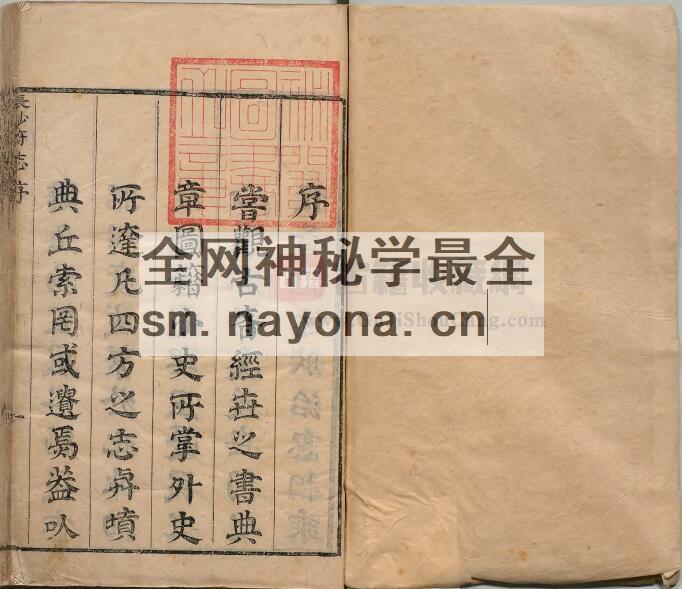 序
嘗觀古者經世之書典
章圖籍小史所掌外史
所達凡四方之志與墳
典丘索罔或遺焉蓋以
長沙府志序
全网神秘学最全
sm. nayona. cn